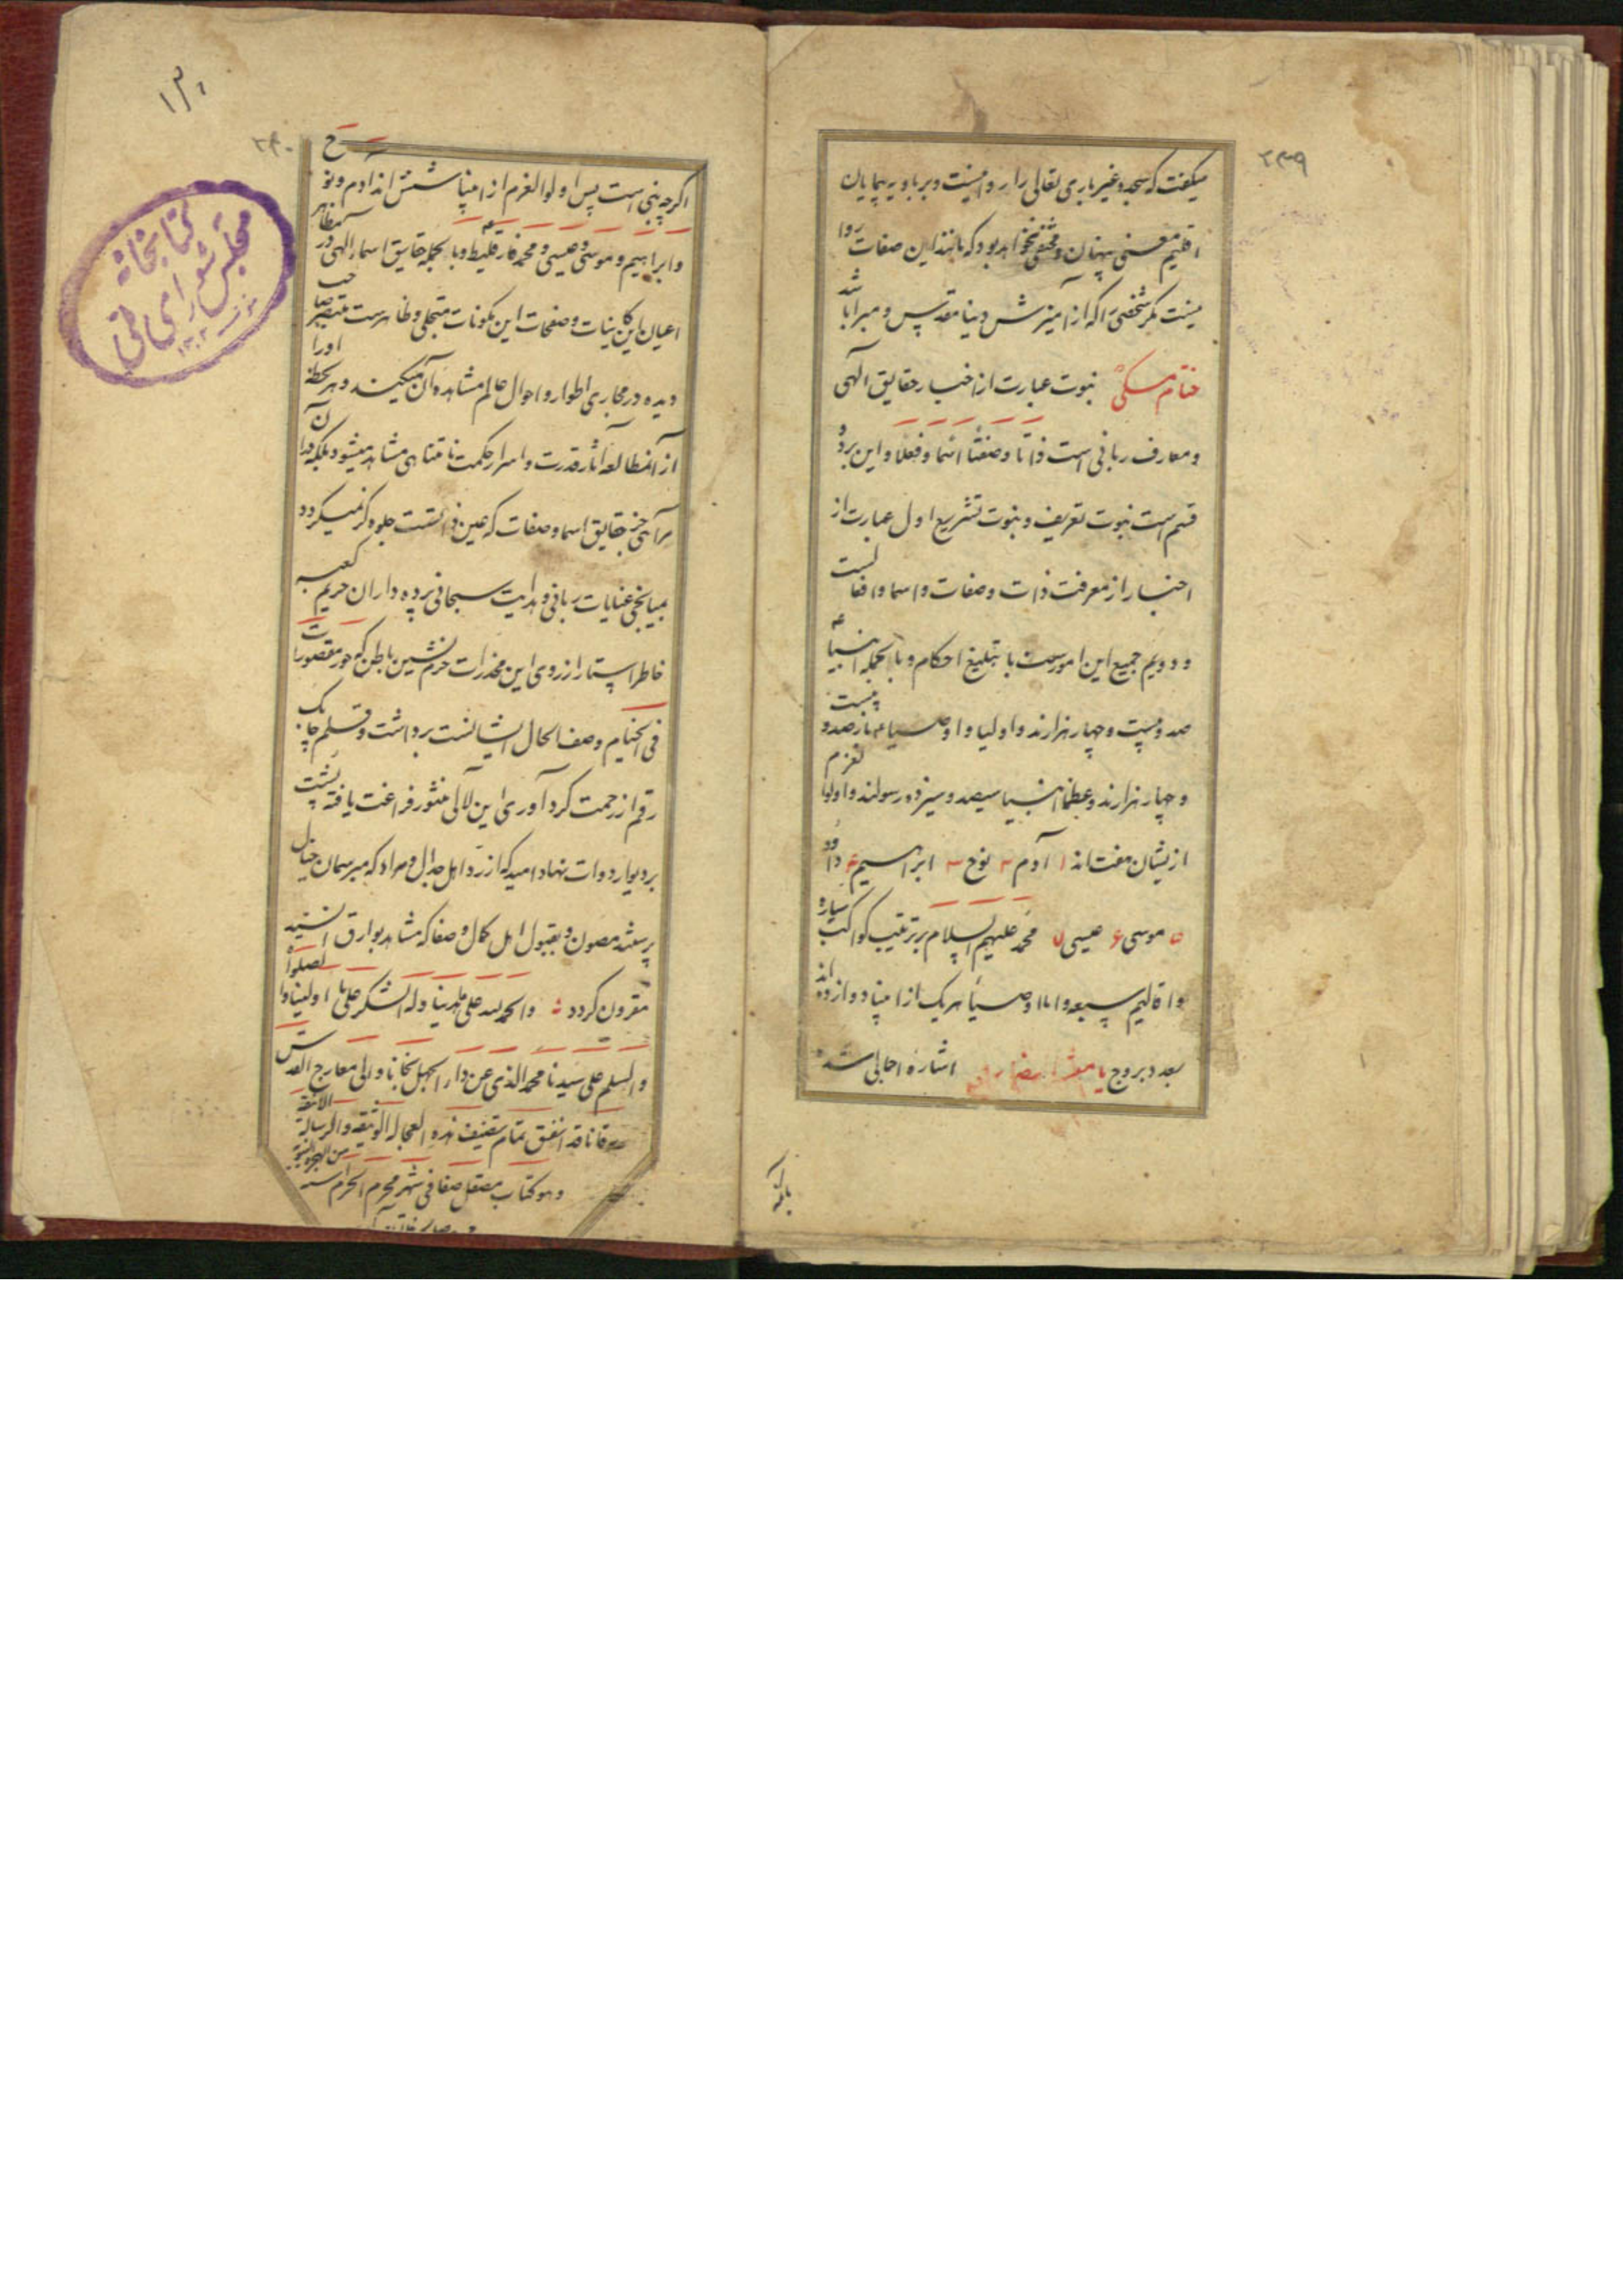 ۲۳۹
میکفت که سجده غیر باری تعالی را روا نیست و بر بادیه پیمایان
اقلیم معنی پنهان و مختفی نخواهد بود که مانند این صفات روا
نیست مکر شخصی را که از آمیزش دنیا مقدس و مبرا باشد
ختام مسکی نبوت عبارت از اخبار حقایق الهی
و معارف ربانی است ذاتا و صفتا اسما و فعلا و این بر دو
قسم است نبوت تعریف و نبوت تشریع اول عبارت از
اخبار از معرفت ذات و صفات و اسما و افعالست
و دویم جمیع این امورست با تبلیغ احکام و بالجمله انبیا
صد و بیست و چهار هزارند و اولیا و اوصیا نیز صد و بیست
و چهار هزارند و عظما انبیا سیصد و سیزده رسولند و اولوا لعزم
ازیشان هفت اند ۱ آدم ۲ نوح ۳ ابراهیم ۴ داود
۵ موسی ۶ عیسی ۷ محمد علیهم السلام بر ترتیب کواکب سیاره
و اقالیم سبعه و اما اوصیا هر یک از اینها دوازده اند
بعدد بروج اشاره اجمالی شد
۲۴۰
اگر چه نبی است پس اولوا لعزم از اینها شش اند آدم و نوح
و ابراهیم و موسی و عیسی و محمد فارقلیط و بالجمله حقایق اسماء الهی در مظاهر
اعیان این کاینات و صفحات این مکونات متجلی و ظاهرست صاحب
دیده در مجاری اطوار و احوال عالم مشاهده آن میکند و هر لحظه او را
از آن مطالعه آثار قدرت و اسرار حکمت نامتناهی مشاهد میشود بلکه در آن
مرآی جز حقایق اسما و صفات که عین ذاتست جلوه گر نمیگردد
بمیانجی عنایات ربانی و هدایت سبحانی پرده داران حریم کعبه
خاطر استار از روی این مخدرات حرم نشین باطن که حور مقصورات
فی الخیام وصف الحال ایشانست برداشت و قلم چابک
رقم از زحمت گردآوری این لآلی منثور فراغت یافته پشت
بر دیوار دوات نهاد امید که از رد اهل جدال و مراد که میر سمان خیال
پرستند مصون و بقبول اهل کمال و صفا که مشاهد بوارق
مقرون کردد والحمد لله علی ما هدینا وله الشکر علی ما اولینا والصلوة
والسلم علی سیدنا محمد الذی عن دار الجهل نجانا والی معارج القدس
قد اتفق تمام تصنیف هذه العجالة الوثیقه والرسالة الانیقه
وهو کتاب مصقل صفا فی شهر محرم الحرام سنه
کتابخانه
مجلس شورای ملی